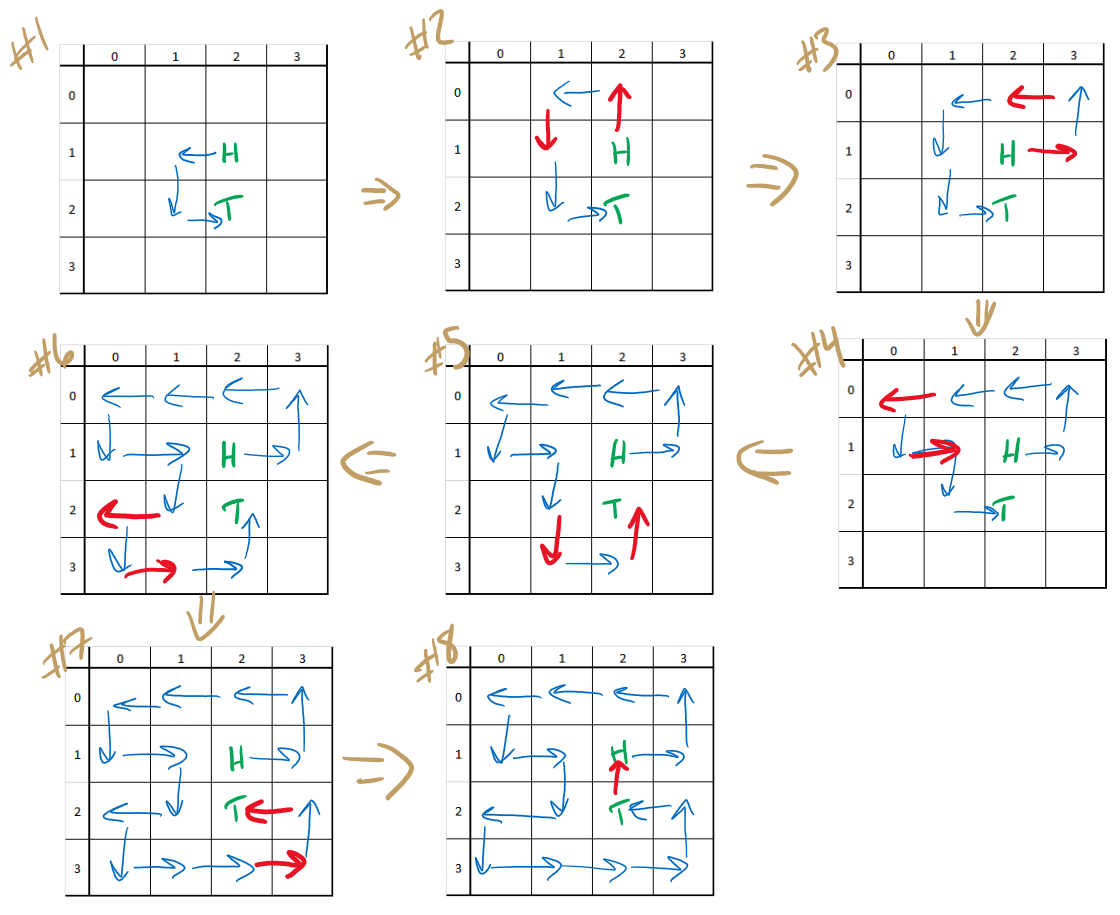 #1
0 1 2 3
0
1 H
2 T
3
#2
0 1 2 3
0
1 H
2 T
3
#3
0 1 2 3
0
1 H
2 T
3
#4
0 1 2 3
0
1 H
2 T
3
#5
0 1 2 3
0
1 H
2 T
3
#6
0 1 2 3
0
1 H
2 T
3
#7
0 1 2 3
0
1 H
2 T
3
#8
0 1 2 3
0
1 H
2 T
3